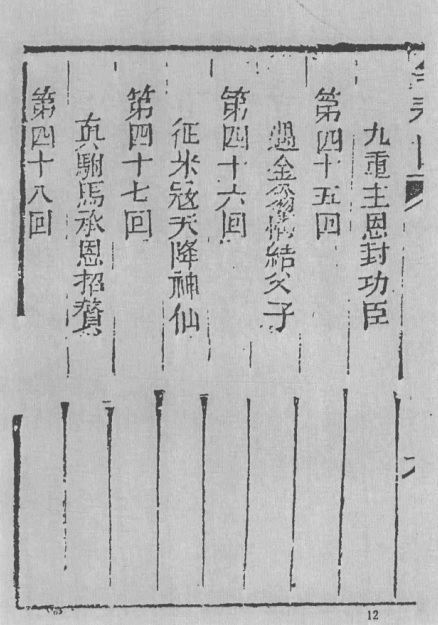 九重主恩封功臣
第四十五回
遇金翁情結父子
第四十六回
征米寇天降神仙
第四十七回
真駙馬承恩招贅
第四十八回
12